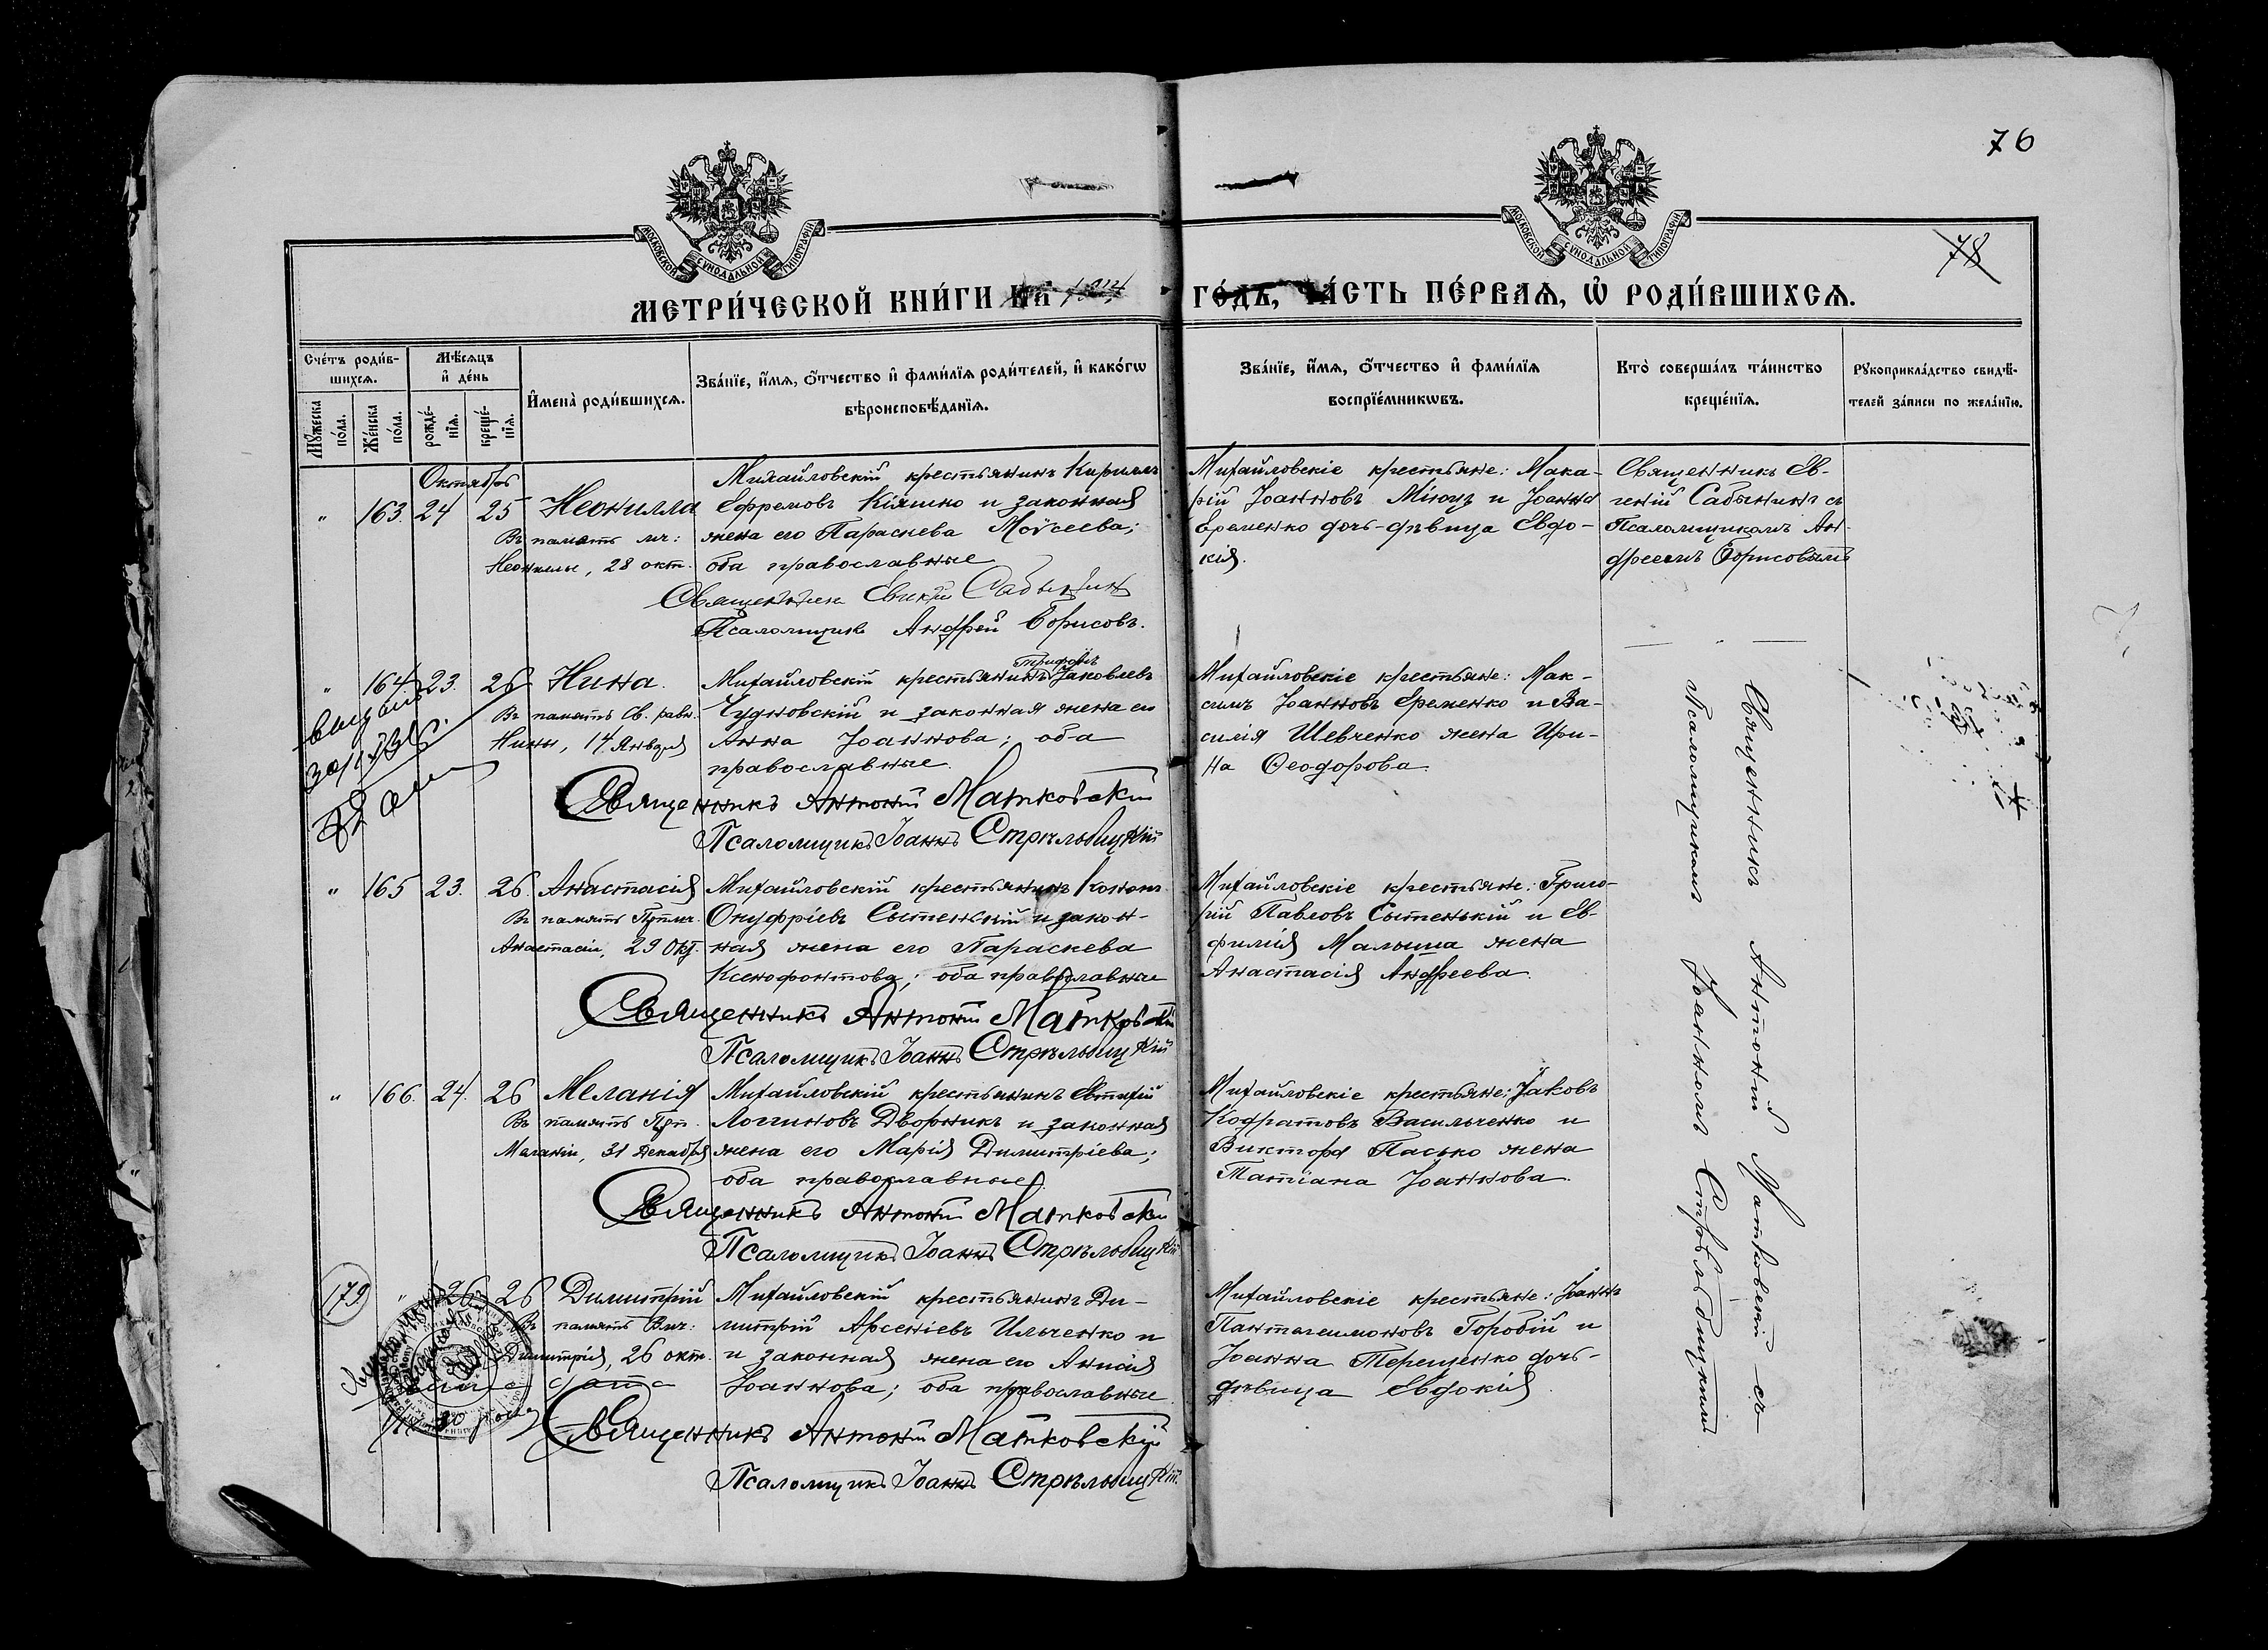 76
78
МОСКОВСКОЙ СУНОДАЛЬНОЙ ТИПОГРАФІИ
МОСКОВСКОЙ СУНОДАЛЬНОЙ ТИПОГРАФІИ
МЕТРИ́ЧЕСКОЙ КНИ́ГИ НА 1914 ГО́ДЪ, ЧА́СТЬ ПЕ́РВАѦ, Ѡ РОДИ́ВШИХСѦ.
Сче́тъ роди́в-
шихсѧ.
Мѣ́сѧцъ
и҆ де́нь
Мꙋ́жеска
по́ла.
Же́нска
по́ла.
рожде́-
нїѧ.
креще́-
нїѧ.
И҆мена̀ роди́вшихсѧ.
Зва́нїе, и҆́мѧ, ѻ҆́тчество и҆ фами́лїѧ роди́телей, и҆ како́гѡ
вѣроисповѣ́данїѧ.
Зва́нїе, и҆́мѧ, ѻ҆́тчество и҆ фами́лїѧ
воспрїе́мникѡвъ.
Кто̀ соверша́лъ та́инство
креще́нїѧ.
Рꙋкоприкла́дство свидѣ́-
телей за́писи по жела́нїю.
Октябрь
" 163. 24 25 Неонилла
Въ память мч:
Неониллы, 28 окт.
Михайловскій крестьянинъ Кириллъ
Ефремовъ Кіяшко и законная
жена его Параскева Моѵсеева;
оба православные
Священник Евгеній Сабынинъ
Псаломщикъ Андрей Борисовъ.
Михайловскіе крестьяне: Мака-
рій Іоанновъ Міюцъ и Іоанна
Еременко дочь-дѣвица Евдо-
кія.
Священникъ Ев-
геній Сабынинъ съ
Псаломщикомъ Ан-
дреемъ Борисовымъ
" 164. 23. 26 Нина.
Въ память Св. равн.
Нины, 14 Января
Трифонъ
Михайловскій крестьянинъ Яковлевъ
Чудновскій и законная жена его
Анна Іоаннова; оба
православные.
Священникъ Антоній Матковскій
Псаломщикъ Іоаннъ Стрѣльбицкій
Михайловскіе крестьяне: Мак-
симъ Іоанновъ Еременко и Ва-
силія Шевченко жена Ири-
на Ѳеодорова.
" 165 23. 26. Анастасія
Въ память Прпмч.
Анастасіи, 29 Окт.
Михайловскій крестьянинъ Кононъ
Онуфріевъ Сытенькій и закон-
ная жена его Параскева
Ксенофонтова; оба православные
Священникъ Антоній Матковскій
Псаломщикъ Іоаннъ Стрѣльбицкій
Михайловскіе крестьяне: Григо-
рій Павловъ Сытенькій и Ев-
филія Малыша жена
Анастасія Андреева.
" 166. 24. 26 Меланія
Въ память Прп.
Меланіи, 31 Декабря
Михайловскій крестьянинъ Евтихій
Логгиновъ Дворникъ и законная
жена его Марія Димитріева;
оба православные.
Священникъ Антоній Матковскій
Псаломщикъ Іоаннъ Стрѣльбицкій
Михайловскіе крестьяне: Яковъ
Кодратовъ Васильченко и
Виктора Пасько жена
Татіана Іоаннова.
179 " 26 26 Димитрій
Въ память Вмч:
Димитрія, 26 окт.
Михайловскій крестьянинъ Ди-
митрій Арсеніевъ Ильченко и
и законная жена его Анисія
Іоаннова; оба православные
Священникъ Антоній Матковскій
Псаломщикъ Іоаннъ Стрѣльбицкій
Михайловскіе крестьяне: Іоаннъ
Пантелеимоновъ Горобій и
Іоанна Терещенко дочь-
дѣвица Евдокія.
Священникъ Антоній Матковскій съ
Псаломщикомъ Іоанномъ Стрѣльбицкимъ